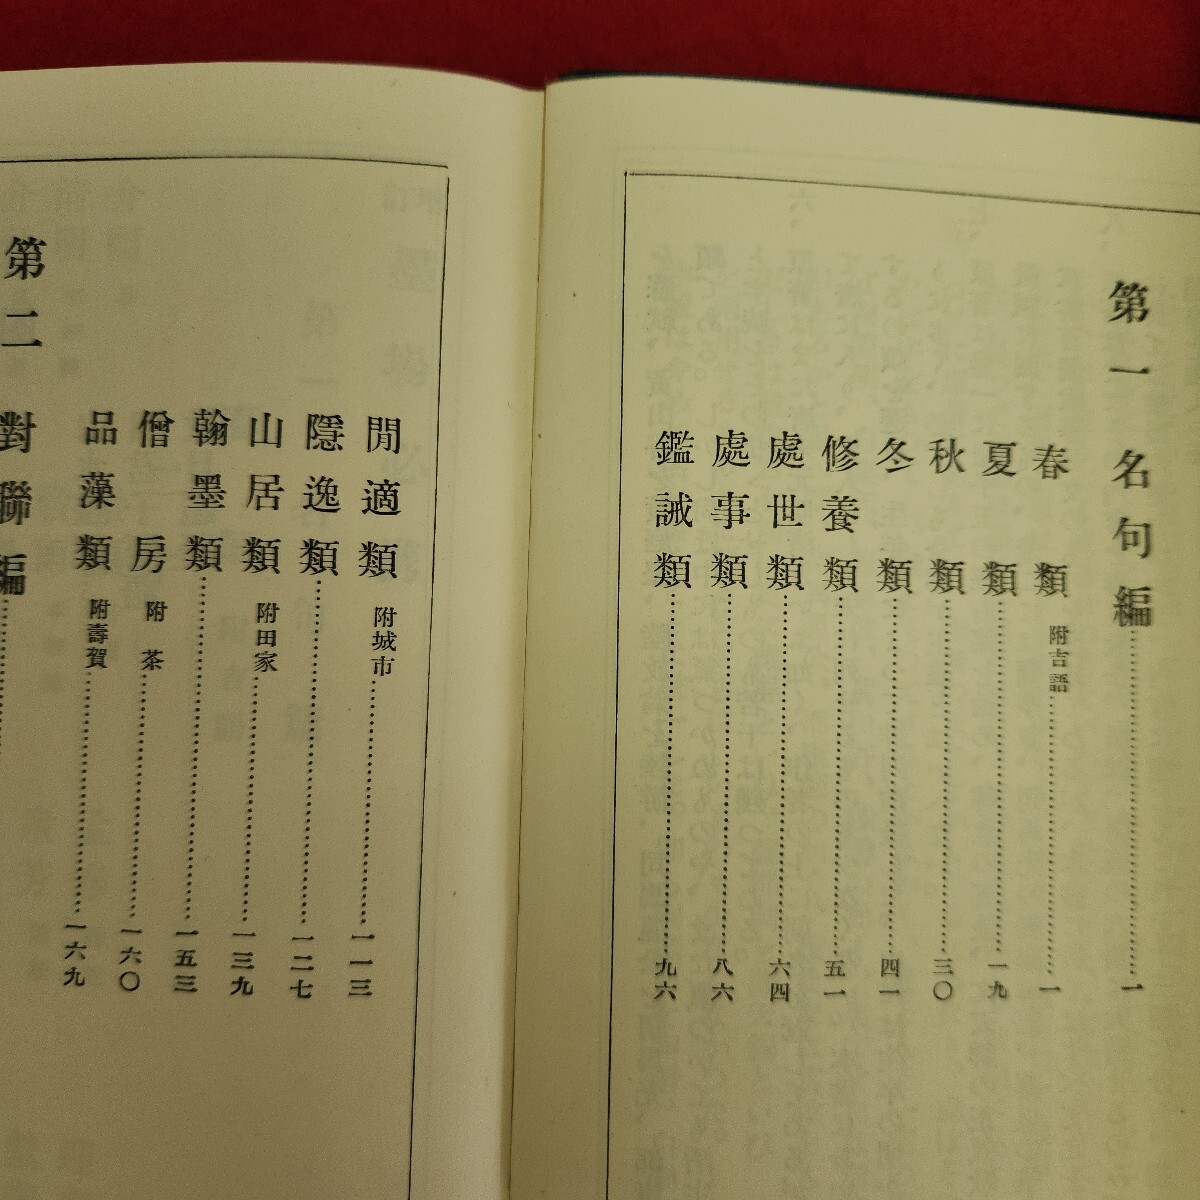 第一 名句編……一
春類 附吉語……一
夏類……一九
秋類……三〇
冬類……四一
修養類……五一
處世類……六四
處事類……八六
鑑誡類……九六
閒適類 附城市……一一三
隱逸類……一二七
山居類 附田家……一三九
翰墨類……一五三
僧房 附茶……一六〇
品藻類 附壽賀……一六九
第二 對聯編……